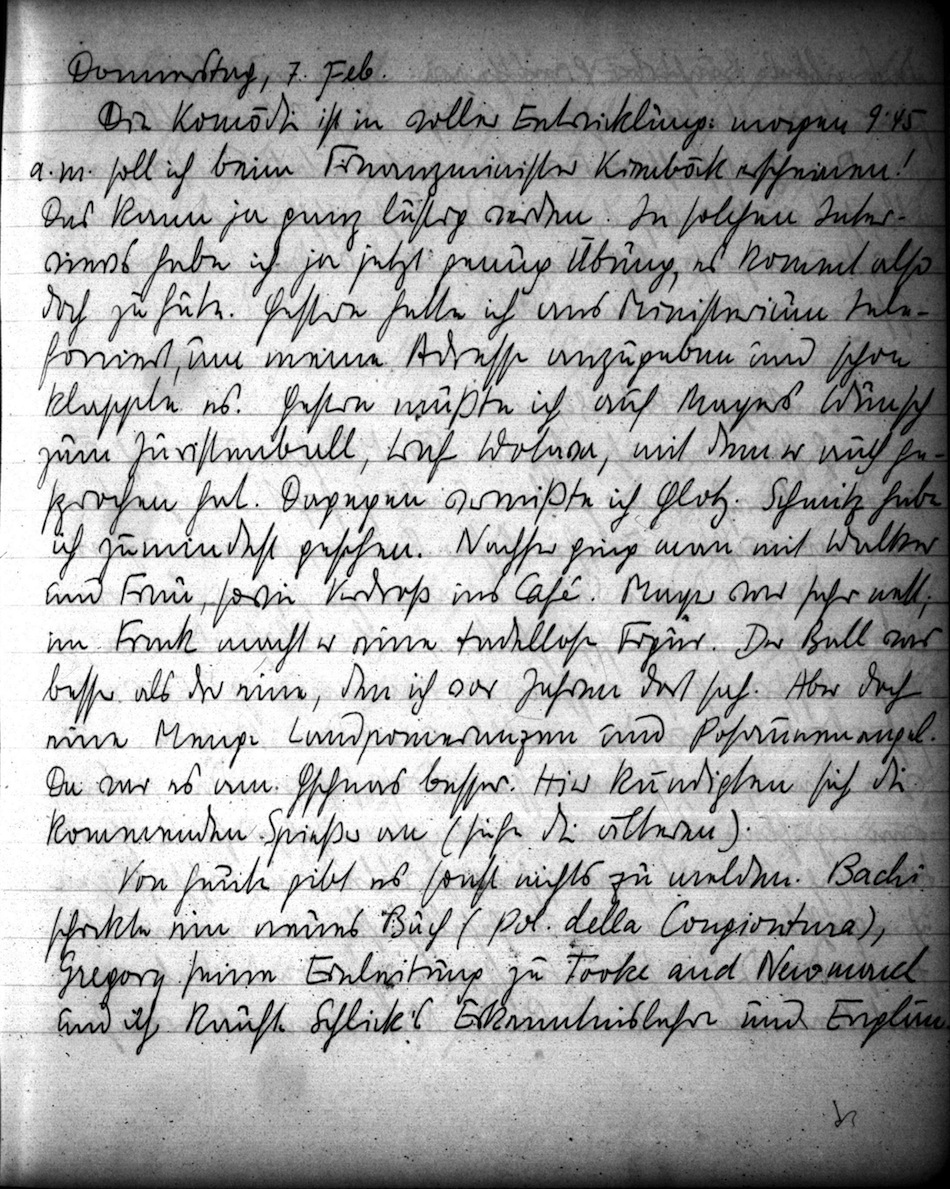 Donnerstag, 7. Feb.
Die Komödie ist in voller Entwicklung: morgen 9.45
a.m. soll ich beim Finanzminister Kienböck erscheinen!
Das kann ja ganz lustig werden. In solchen Inter-
views habe ich ja jetzt genug Übung, es kommt also
doch zu gute. Gestern hatte ich ans Ministerium tele-
foniert, um meine Adresse anzugeben und schon
klappte es. Gestern mußte ich auf Mayers Wunsch
zum Juristenball, traf Wolura, mit dem er auch ge-
sprochen hat. Dagegen vermißte ich Glotz. Schmitz habe
ich zumindest gesehen. Nachher ging man mit Walker
und Frau, sowie Verdroß ins Café. Mayer war sehr nett,
im Frack macht er eine tadellose Figur. Der Ball war
besser als der eine, den ich vor Jahren dort sah. Aber doch
eine Menge Landpomeranzen und Posaunenengel.
Da war es am Gschnas besser. Hier kündigten sich die
kommenden Spießer an (siehe die älteren).
Von heute gibt es sonst nichts zu melden. Bachi
schickte ein neues Buch (Pol. della Congiontura),
Gregory seine Einleitung zu Tooke and Newmarch
und ich kaufte Schlick's Erkenntnislehre und Englän